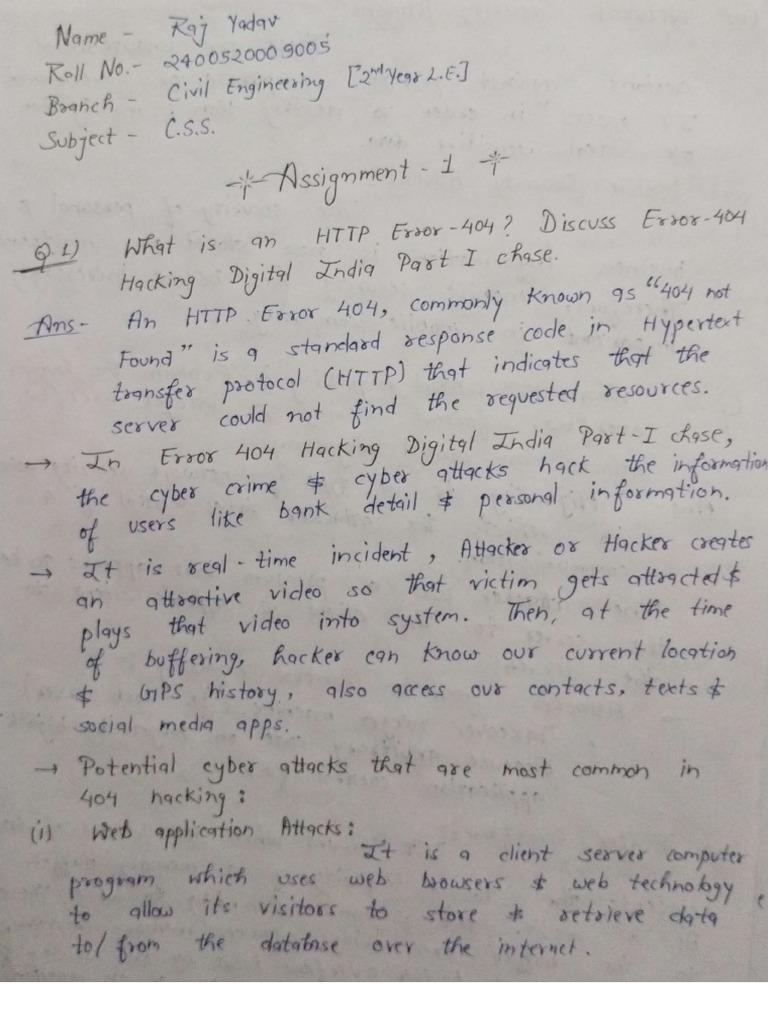 Name - Raj Yadav
Roll No. - 2400520009005
Branch - Civil Engineering [2nd Year L.E.]
Subject - C.S.S.
Assignment - 1
Q.1) What is an HTTP Error-404? Discuss Error-404
Hacking Digital India Part I chase.
Ans- An HTTP Error 404, commonly known as "404 not
Found" is a standard response code in Hypertext
transfer protocol (HTTP) that indicates that the
server could not find the requested resources.
→ In Error 404 Hacking Digital India Part-I chase,
the cyber crime & cyber attacks hack the information
of users like bank detail & personal information.
→ It is real-time incident, Attacker or Hacker creates
an attractive video so that victim gets attracted &
plays that video into system. Then, at the time
of buffering, hacker can know our current location
& GPS history, also access our contacts, texts &
social media apps.
→ Potential cyber attacks that are most common in
404 hacking:
(i) Web application Attacks:
It is a client server computer
program which uses web browsers & web technology
to allow its visitors to store & retrieve data
to/from the database over the internet.